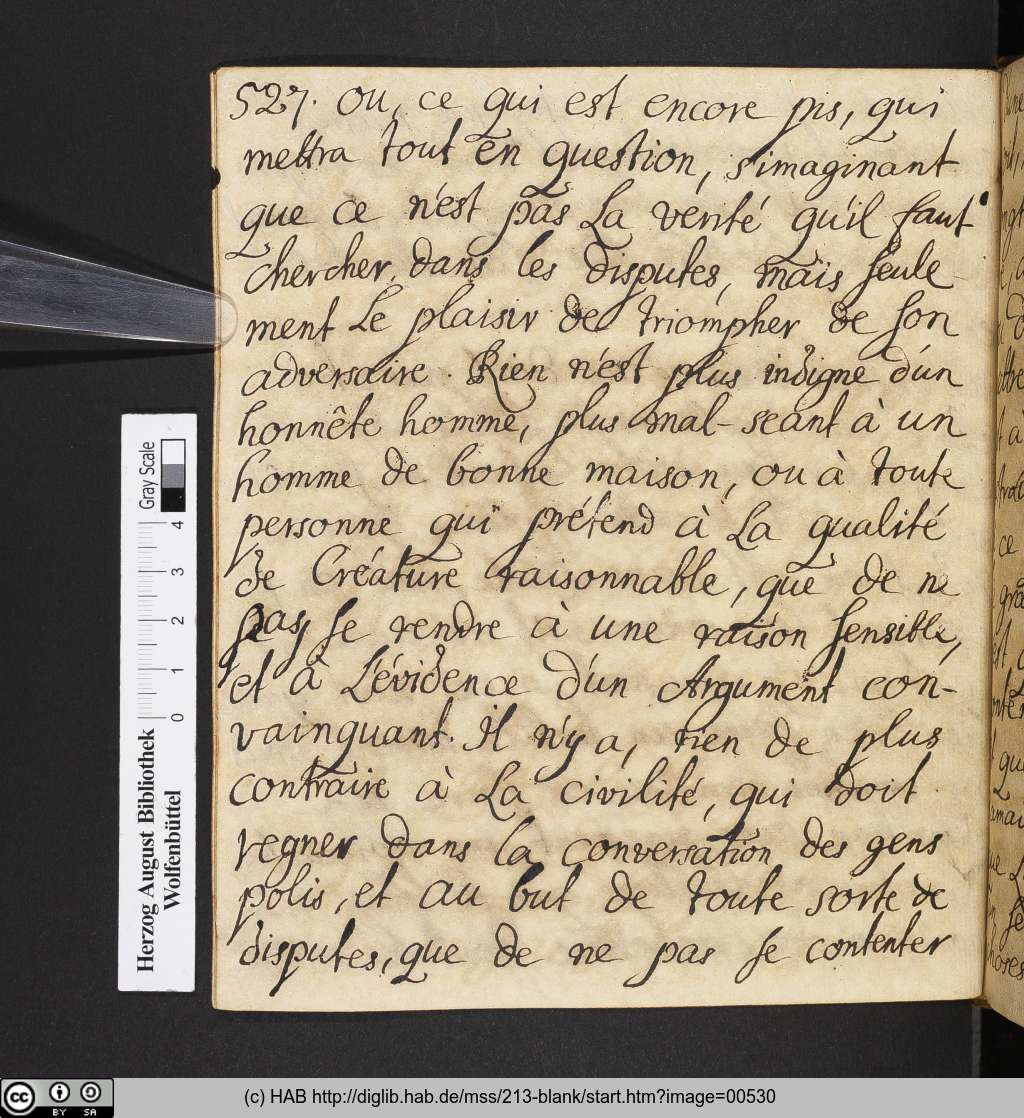 527. ou, ce qui est encore pis, qui
mettra tout en question, s'imaginant
que ce n'est pas La verité qu'il faut
chercher, dans les disputes, mais seule
ment Le plaisir de triompher de son
adversaire. Rien n'est plus indigne d'un
honnête homme, plus mal-seant à un
homme de bonne maison, ou à toute
personne qui prétend à La qualité
de Créature raisonnable, que de ne
pas se rendre à une raison sensible,
et à L'évidence d'un Argument con-
vainquant. Il n'y a, rien de plus
contraire à La civilité, qui doit
regner dans la conversation des gens
polis, et au but de toute sorte de
disputes, que de ne pas se contenter
Gray Scale
4
3
2
1
0
Herzog August Bibliothek
Wolfenbüttel
cc BY SA
(c) HAB http://diglib.hab.de/mss/213-blank/start.htm?image=00530